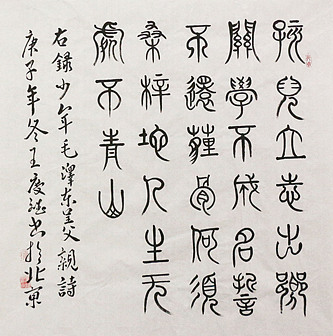 孩兒立志出鄉
關學不成名誓
不還薶骨何須
桑梓地人生无
處不青山
右録少年毛澤东呈父親詩
庚子年冬王慶书於北京